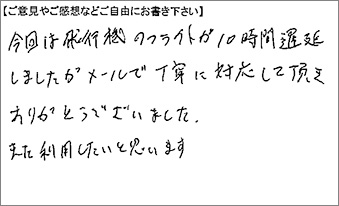 【ご意見やご感想などご自由にお書き下さい】
今回は飛行機のフライトが10時間遅延
しましたがメールで丁寧に対応して頂き
ありがとうございました.
また利用したいと思います